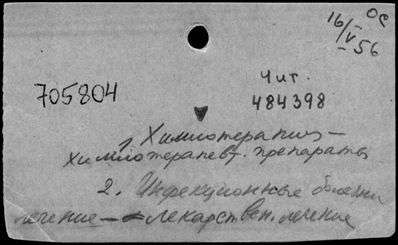 16/V 56
ОС
705804
Чит.
484398
1. Химиотерапия —
химиотерапевт. препараты
2. Инфекционные болезни
лечение — лекарствен. лечение